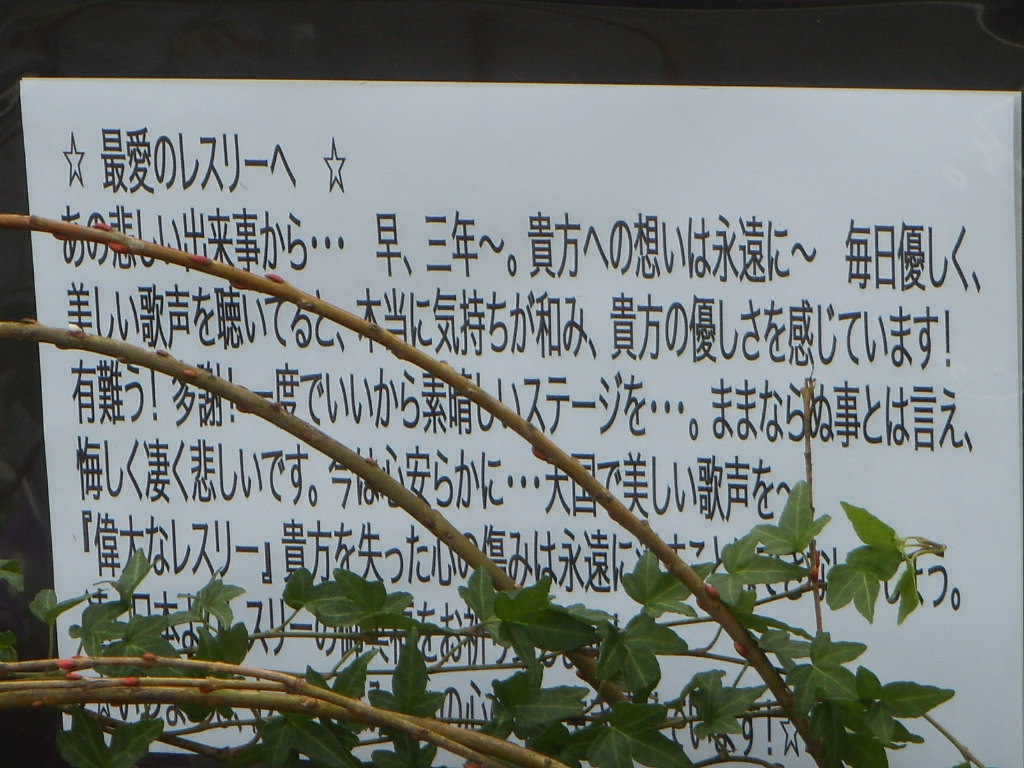 ☆ 最愛のレスリーへ ☆
あの悲しい出来事から… 早、三年~。貴方への想いは永遠に~ 毎日優しく、
美しい歌声を聴いてると、本当に気持ちが和み、貴方の優しさを感じています!
有難う!多謝!一度でいいから素晴しいステージを…。ままならぬ事とは言え、
悔しく凄く悲しいです。今は心安らかに…天国で美しい歌声を~
『偉大なレスリー』貴方を失った心の傷みは永遠に
レスリーの をお祈り
の心 ます!☆